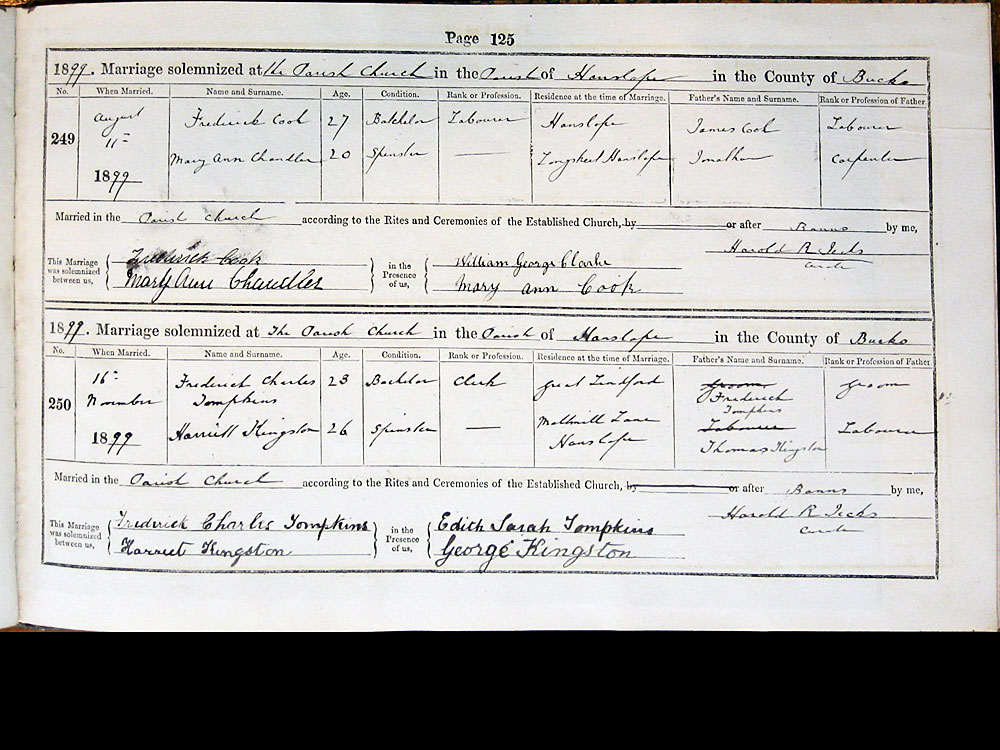 Page 125
1899. Marriage solemnized at the Parish Church in the Parish of Hanslope in the County of Bucks
No. When Married. Name and Surname. Age. Condition. Rank or Profession. Residence at the time of Marriage. Father's Name and Surname. Rank or Profession of Father.
249 August 11 1899 Frederick Cook 27 Batchelor Labourer Hanslope James Cook Labourer
Mary Ann Chandler 20 Spinster — Hanslope Jonathan Carpenter
Married in the Parish Church according to the Rites and Ceremonies of the Established Church, by or after Banns by me,
Harold R
This Marriage was solemnized between us, Frederick Cook in the Presence of us, William George Clarke
Mary Ann Chandler Mary Ann Cook
1899. Marriage solemnized at The Parish Church in the Parish of Hanslope in the County of Bucks
No. When Married. Name and Surname. Age. Condition. Rank or Profession. Residence at the time of Marriage. Father's Name and Surname. Rank or Profession of Father.
250 16 November 1899 Frederick Charles Tompkins 23 Bachelor Clerk Great Linford Groom Frederick Tompkins Groom
Harriett Kingston 26 Spinster — Maltmill Lane Hanslope Labourer Thomas Kingston Labourer
Married in the Parish Church according to the Rites and Ceremonies of the Established Church, by or after Banns by me,
Harold R
This Marriage was solemnized between us, Frederick Charles Tompkins in the Presence of us, Edith Sarah Tompkins
Harriet Kingston George Kingston